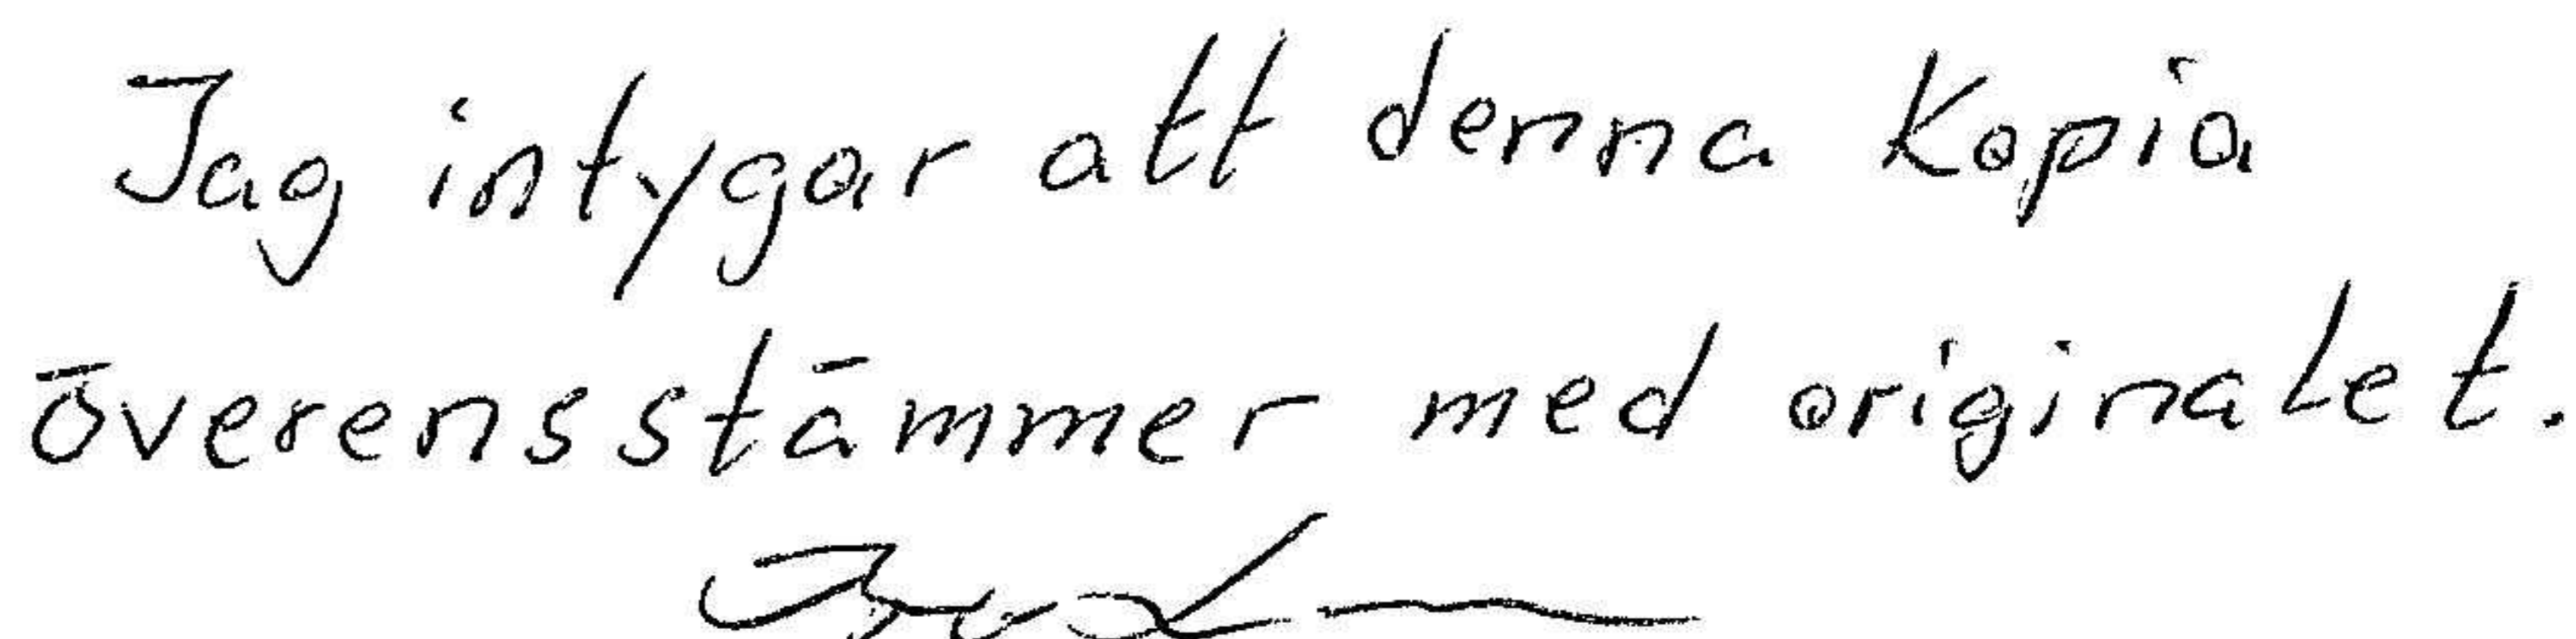 Jag intygar att denna Kopia
överensstämmer med originalet.